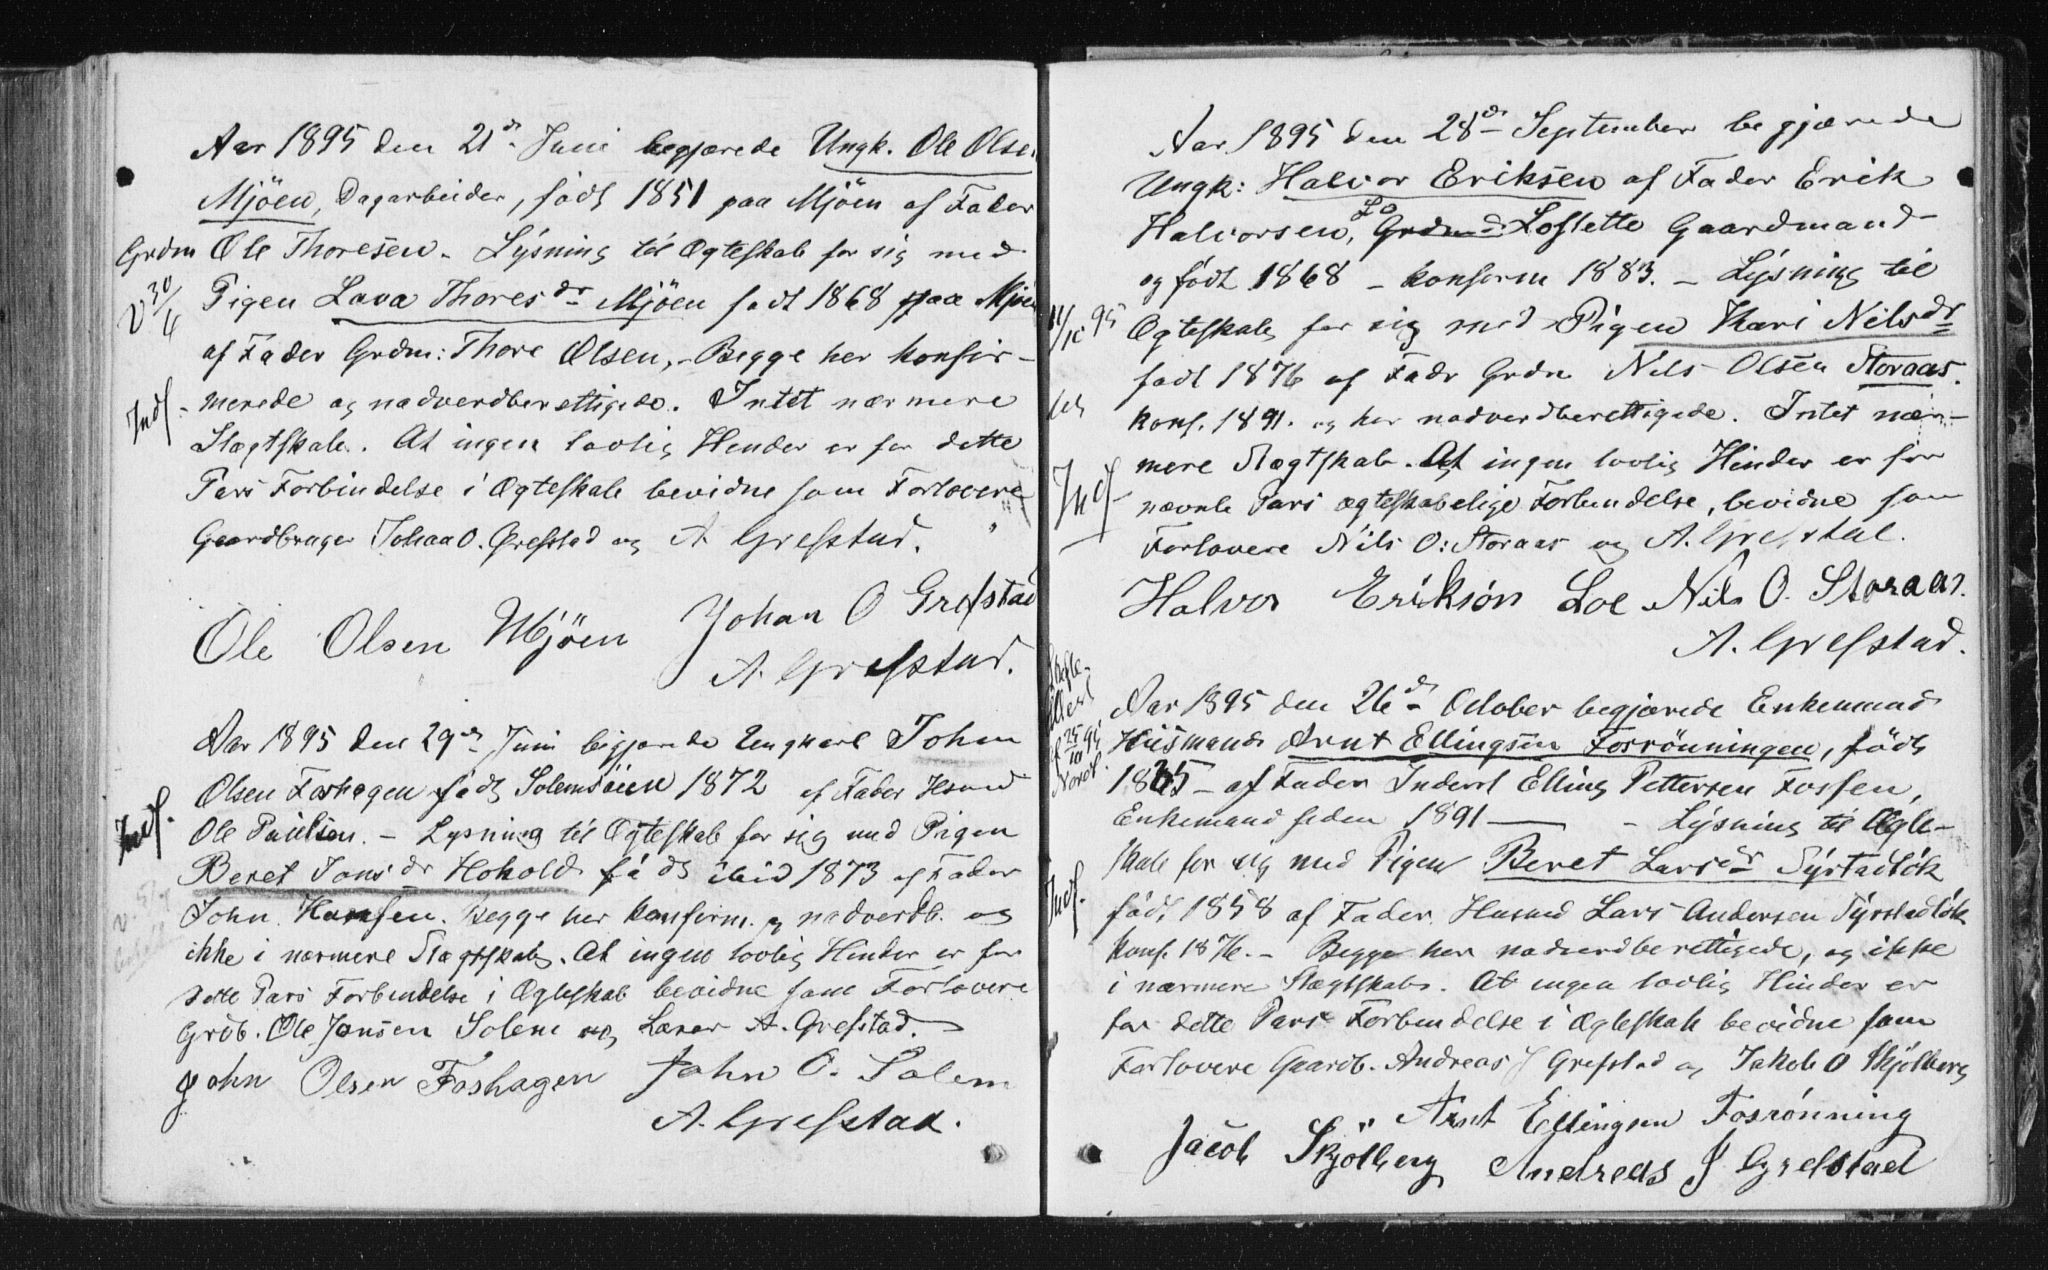 Aar 1895 den 21de Juni begjærede Ungk. Ole Olsen
Mjöen, Dagarbeider, født 1851 paa Mjöen af Fader
Grdm Ole Thoresen. Lysning til Ægteskab for sig med
V 30/4
Pigen Lava Thoresdr Mjöen født 1868 paa Mjöen
af Fader Grdm: Thore Olsen, - Begge her konfir-
Indf. merede og nadverdberettigede. Intet nærmere
Slægtskab. At ingen lovlig Hinder er for dette
Pars Forbindelse i Ægteskab bevidne som Forlovere
Gaardbruger Johan O. Grefstad og A Grefstad.
Ole Olsen Mjöen Johan O Grefstad
A. Grefstad.
Aar 1895 den 29de Juni begjærede Ungkarl John
Olsen Foshagen født Solemsøien 1872 af Fader Husmd
Indf. Ole Paulsen. - Lysning til Ægteskab for sig med Pigen
Beret Jonsdr Hohold født ibid 1873 af Fader
John Hansen. Begge her konfirm. og nadverdb. og
ikke i nærmere Slægtskab. At ingen lovlig Hinder er for
dette Pars Forbindelse i Ægteskab bevidne som Forlovere
Grdb. Ole Jonsen Solem og Lærer A. Grefstad.
John Olsen Foshagen John O. Solem
A. Grefstad.
Aar 1895 den 28de September begjærede
Ungk: Halvor Eriksen af Fader Erik
Halvorsen, Lo Grdm Loslette Gaardmand
og født 1868 - konform 1883. - Lysning til
95 Ægteskab for sig med Pigen Kari Nilsdr
født 1876 af Fadr Grdm Nils Olsen Storaas.
konf. 1891. og her nadverdberettigede. Intet nær-
mere Slægtskab. At ingen lovlig Hinder er for
Indf nævnte Pars ægteskabelige Forbindelse, bevidne som
Forlovere Nils O: Storaas og A. Grefstad.
Halvor Erikson Loe Nils O. Storaas.
A. Grefstad.
Aar 1895 den 26de October begjærede Enkemand
25/10 95
Husmand Arnt Ellingsen Fosrönningen, født
1865 - af Fader Inderst Elling Pettersen Fossen,
Enkemand siden 1891 - Lysning til Ægte-
skab for sig med Pigen Beret Larsdr Syrstadløk
Indf. født 1858 af Fader Husmd Lars Andersen Syrstadløk
konf. 1876. - Begge her nadverdberettigede, og ikke
i nærmere Slægtskab. At ingen lovlig Hinder er
for dette Pars Forbindelse i Ægteskab bevidne som
Forlovere Gaardb. Andreas J Grefstad og Jakob O Skjölberg
Arnt Ellingsen Fosrønning
Jacob Skjölberg Andreas J Grefstad